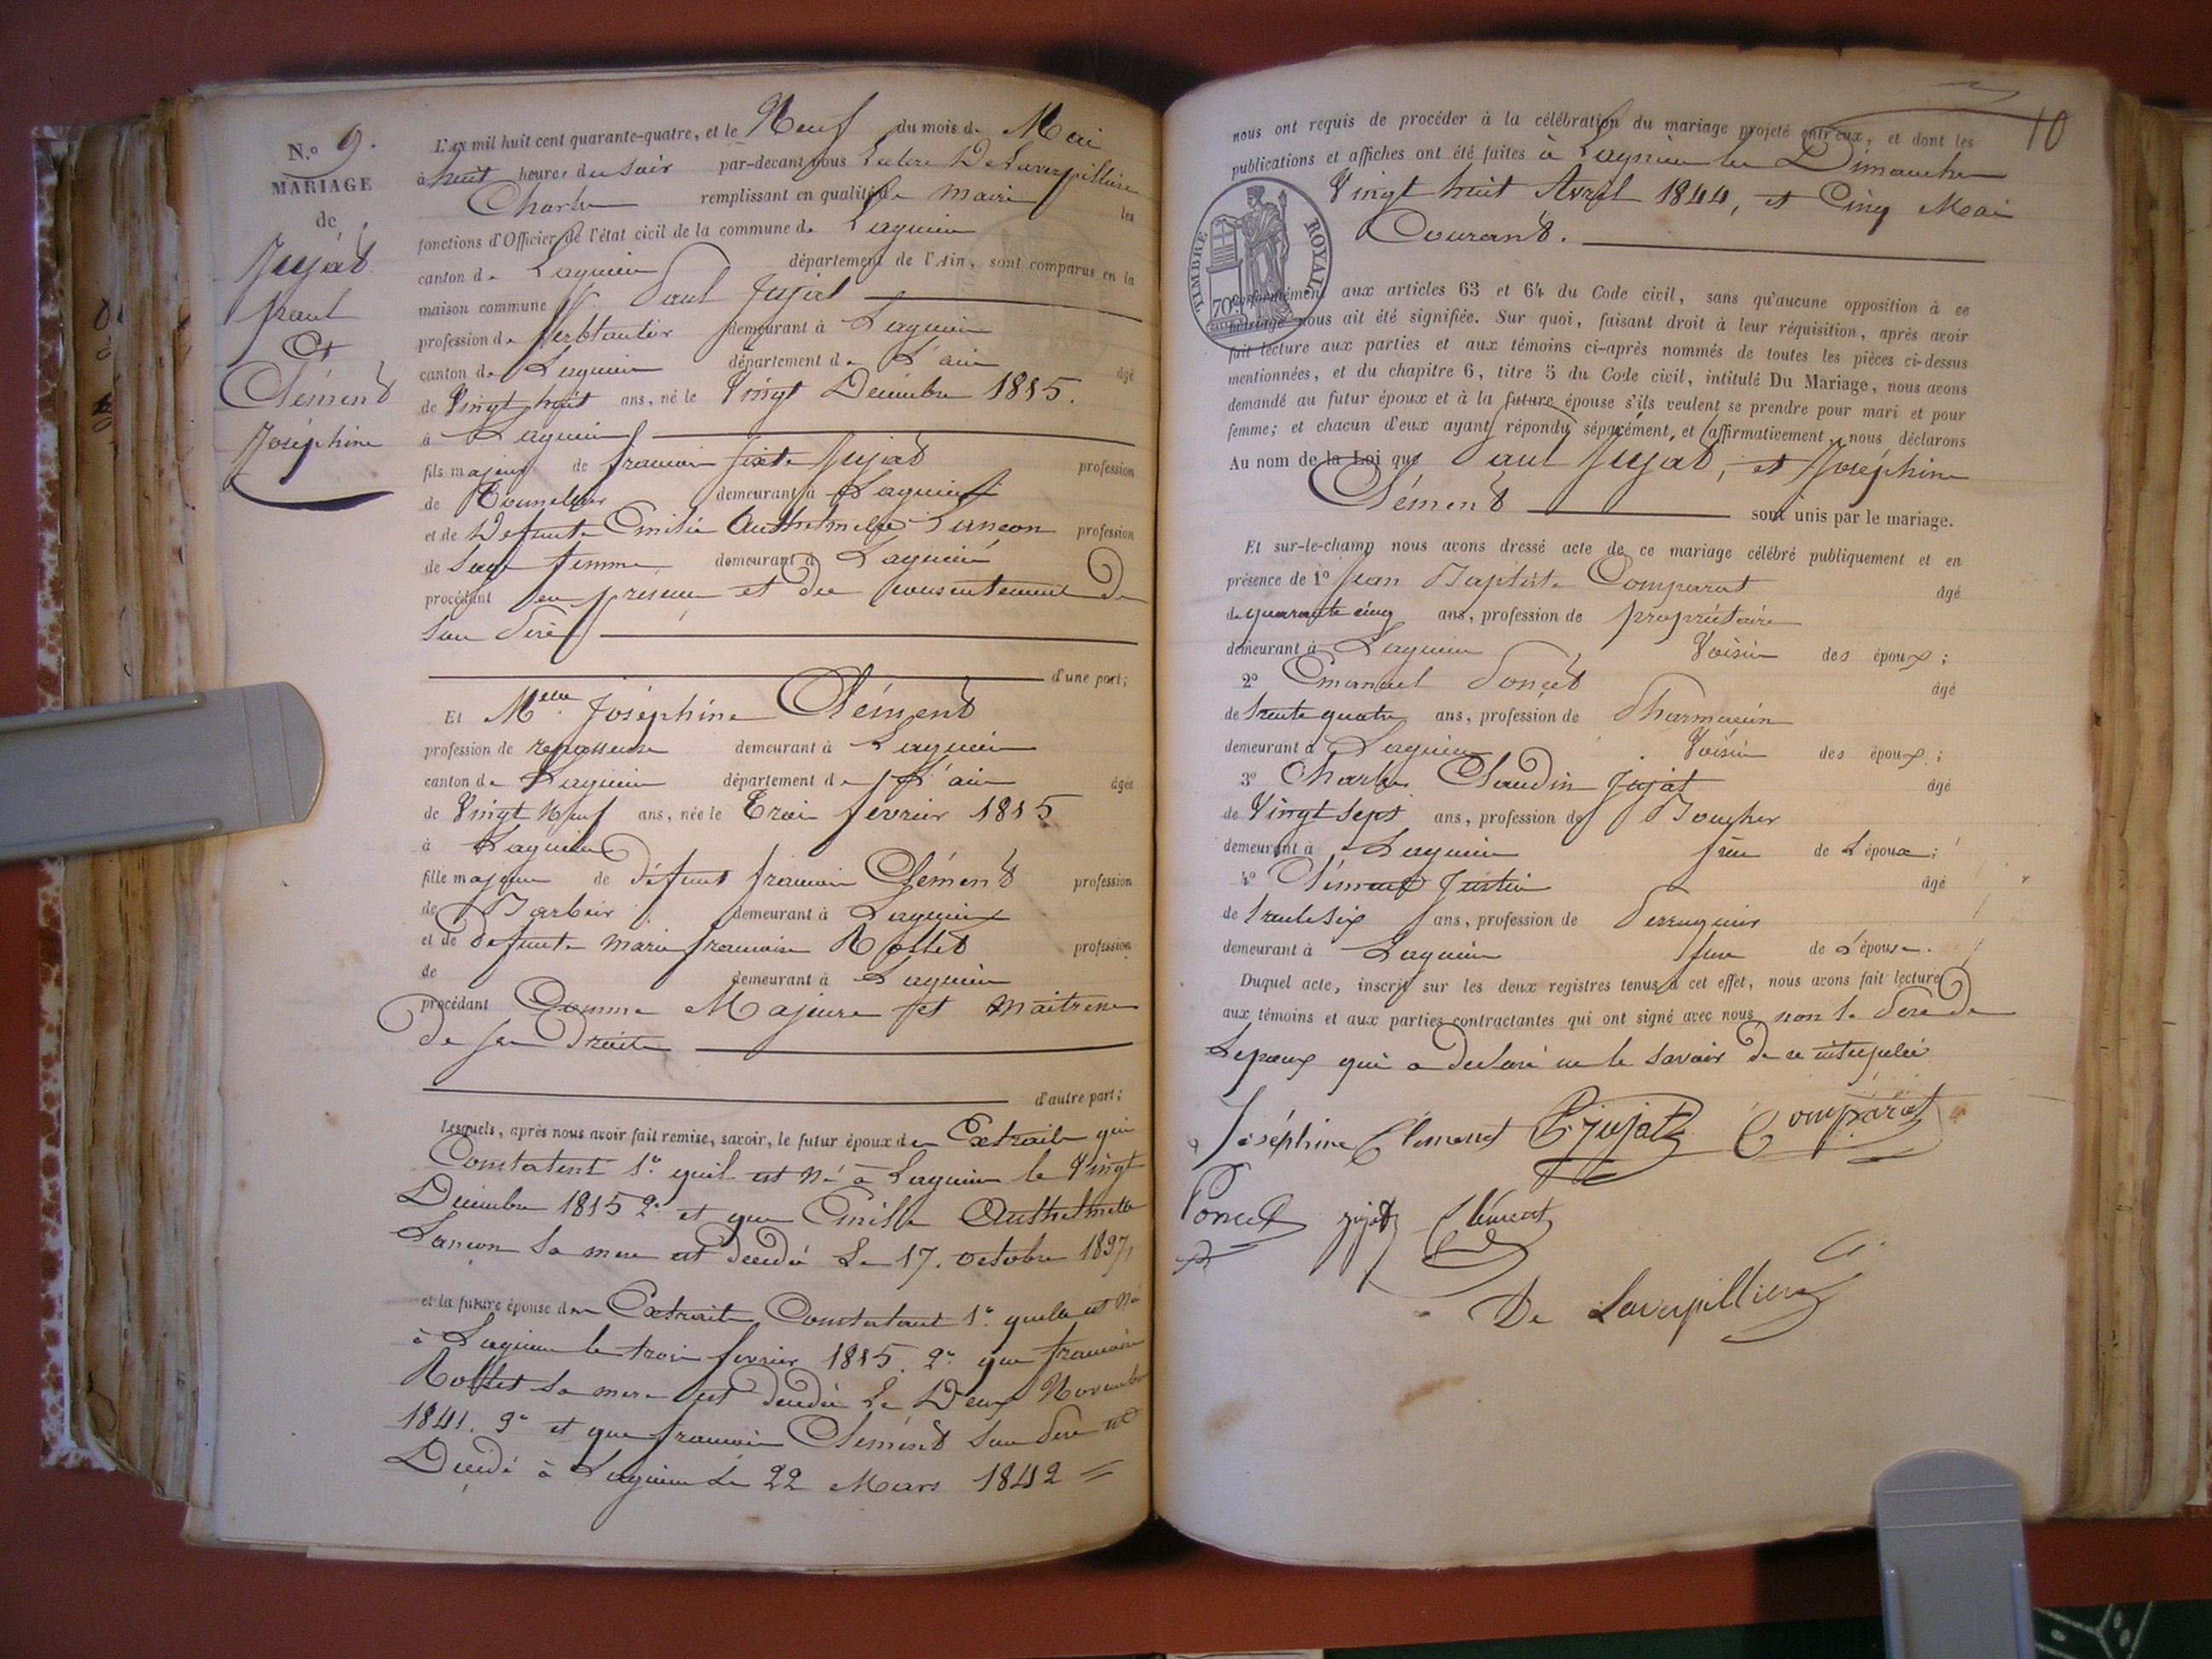 N.o 9.
MARIAGE
de
Jujat
paul
Et
Clément
Joséphine
L'an mil huit cent quarante-quatre, et le Neuf du mois de Mai
à huit heures du soir par-devant nous De Laverpilliere
Charles remplissant en qualité de maire les
fonctions d'Officier de l'état civil de la commune de Lagnieu
canton de Lagnieu département de l'Ain, sont comparus en la
maison commune Sr. Paul Jujat
profession de ferblantier demeurant à Lagnieu
canton de Lagnieu département de L'ain âgé
de Vingt huit ans, né le Vingt Decembre 1815.
à Lagnieu
fils majeur de francois Jujat profession
de Tonnelier demeurant à Lagnieu
et de Defunte Emilie Anthelmette Lancon profession
de Sage femme demeurant à Lagnieu
procédant en presence et du consentement de
son Père
d'une part;
Et Melle Joséphine Clément
profession de repasseuse demeurant à Lagnieu
canton de Lagnieu département de L'ain âgée
de Vingt Neuf ans, née le Trois fevrier 1815
à Lagnieu
fille majeure de défunt francois Clément profession
de Barbier demeurant à Lagnieu
et de defunte marie francoise Rollet profession
de demeurant à Lagnieu
procédant Comme Majeure et maitresse
de ses Droits
d'autre part;
Lesquels, après nous avoir fait remise, savoir, le futur époux des Extraits qui
Constatent 1° quil est né à Lagnieu le Vingt
Decembre 1815 2° et que Emilie Anthelmette
Lancon sa mere est decedée Le 17. octobre 1837,
et la future épouse des Extraits Constatant 1° quelle est né
à Lagnieu le trois fevrier 1815. 2° que francoise
Rollet sa mere est decedée Le Deux Novembre
1841. 3° et que francois Clément son Pere est
Decedé à Lagnieu Le 22 Mars 1842 =
10
nous ont requis de procéder à la célébration du mariage projeté entr'eux, et dont les
publications et affiches ont été faites à Lagnieu les Dimanches
Vingt huit Avril 1844, et Cinq Mai
Courant.
TIMBRE ROYAL
70c
conformément aux articles 63 et 64 du Code civil, sans qu'aucune opposition à ce
mariage nous ait été signifiée. Sur quoi, faisant droit à leur réquisition, après avoir
fait lecture aux parties et aux témoins ci-après nommés de toutes les pièces ci-dessus
mentionnées, et du chapitre 6, titre 5 du Code civil, intitulé Du Mariage, nous avons
demandé au futur époux et à la future épouse s'ils veulent se prendre pour mari et pour
femme; et chacun d'eux ayant répondu séparément, et affirmativement, nous déclarons
Au nom de la Loi que Paul Jujat, et Joséphine
Clément sont unis par le mariage.
Et sur-le-champ nous avons dressé acte de ce mariage célébré publiquement et en
présence de 1° Jean Baptiste Comparat âgé
de quarante cinq ans, profession de propriétaire
demeurant à Lagnieu Voisin des époux;
2° Emanuel Poncet âgé
de trente quatre ans, profession de Pharmacien
demeurant à Lagnieu Voisin des époux;
3° Charles Claudin Jujat âgé
de Vingt Sept ans, profession de Boucher
demeurant à Lagnieu frere de L'époux;
4° Clément Justin âgé
de trente Six ans, profession de Perruquier
demeurant à Lagnieu frere de L'épouse.
Duquel acte, inscrit sur les deux registres tenus à cet effet, nous avons fait lecture
aux témoins et aux parties contractantes qui ont signé avec nous, non le Pere de
Lepoux qui a declaré ne le savoir de ce interpelé
Joséphine Clement Jujat Comparat
Poncet jujat Clément
De Laverpilliere